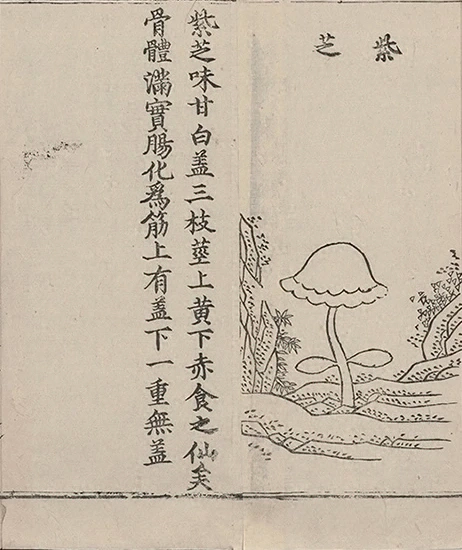 紫芝
紫芝味甘白盖三枝莖上黄下赤食之仙矣
骨體滿實腸化爲筋上有盖下一重無盖